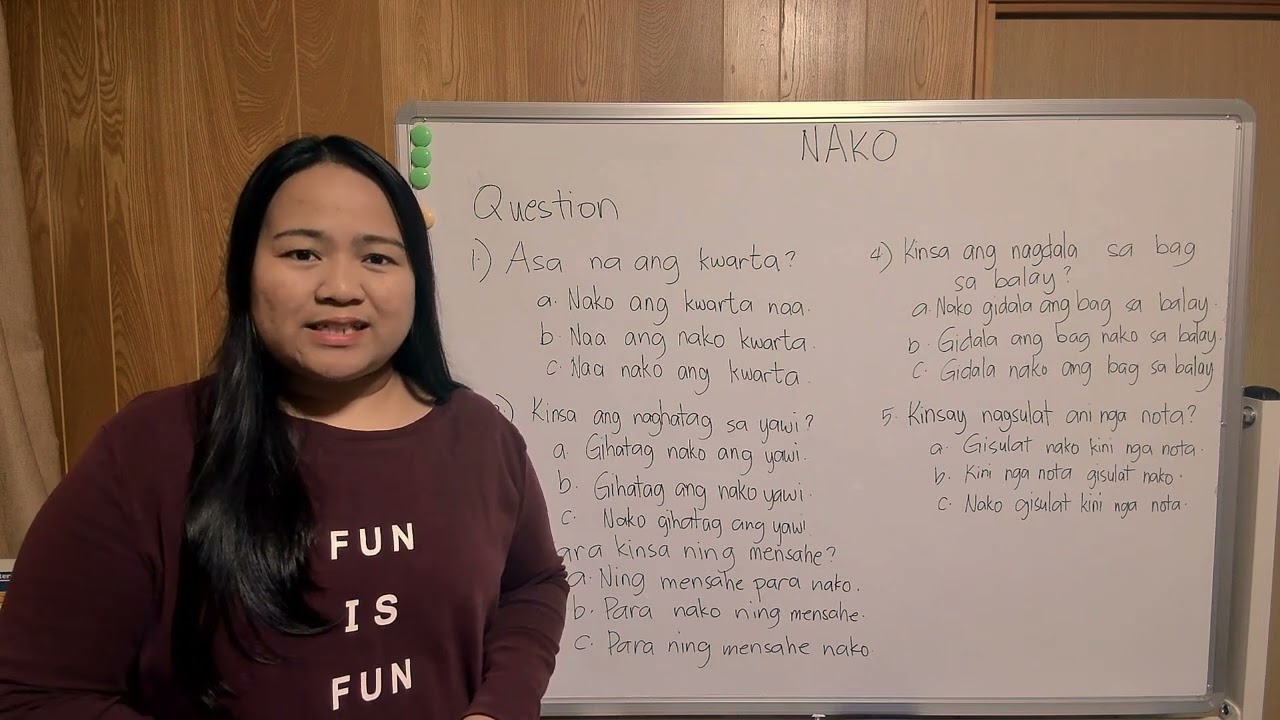 NAKO
Question
1.) Asa na ang kwarta?
a. Nako ang kwarta naa.
b. Naa ang nako kwarta.
c. Naa nako ang kwarta.
) Kinsa ang naghatag sa yawi?
a. Gihatag nako ang yawi.
b. Gihatag ang nako yawi.
c. Nako gihatag ang yawi
ara kinsa ning mensahe?
a. Ning mensahe para nako.
b. Para nako ning mensahe.
c. Para ning mensahe nako.
4) Kinsa ang nagdala sa bag
sa balay?
a. Nako gidala ang bag sa balay.
b. Gidala ang bag nako sa balay.
c. Gidala nako ang bag sa balay
5. Kinsay nagsulat ani nga nota?
a. Gisulat nako kini nga nota.
b. Kini nga nota gisulat nako.
c. Nako gisulat kini nga nota.
FUN
IS
FUN